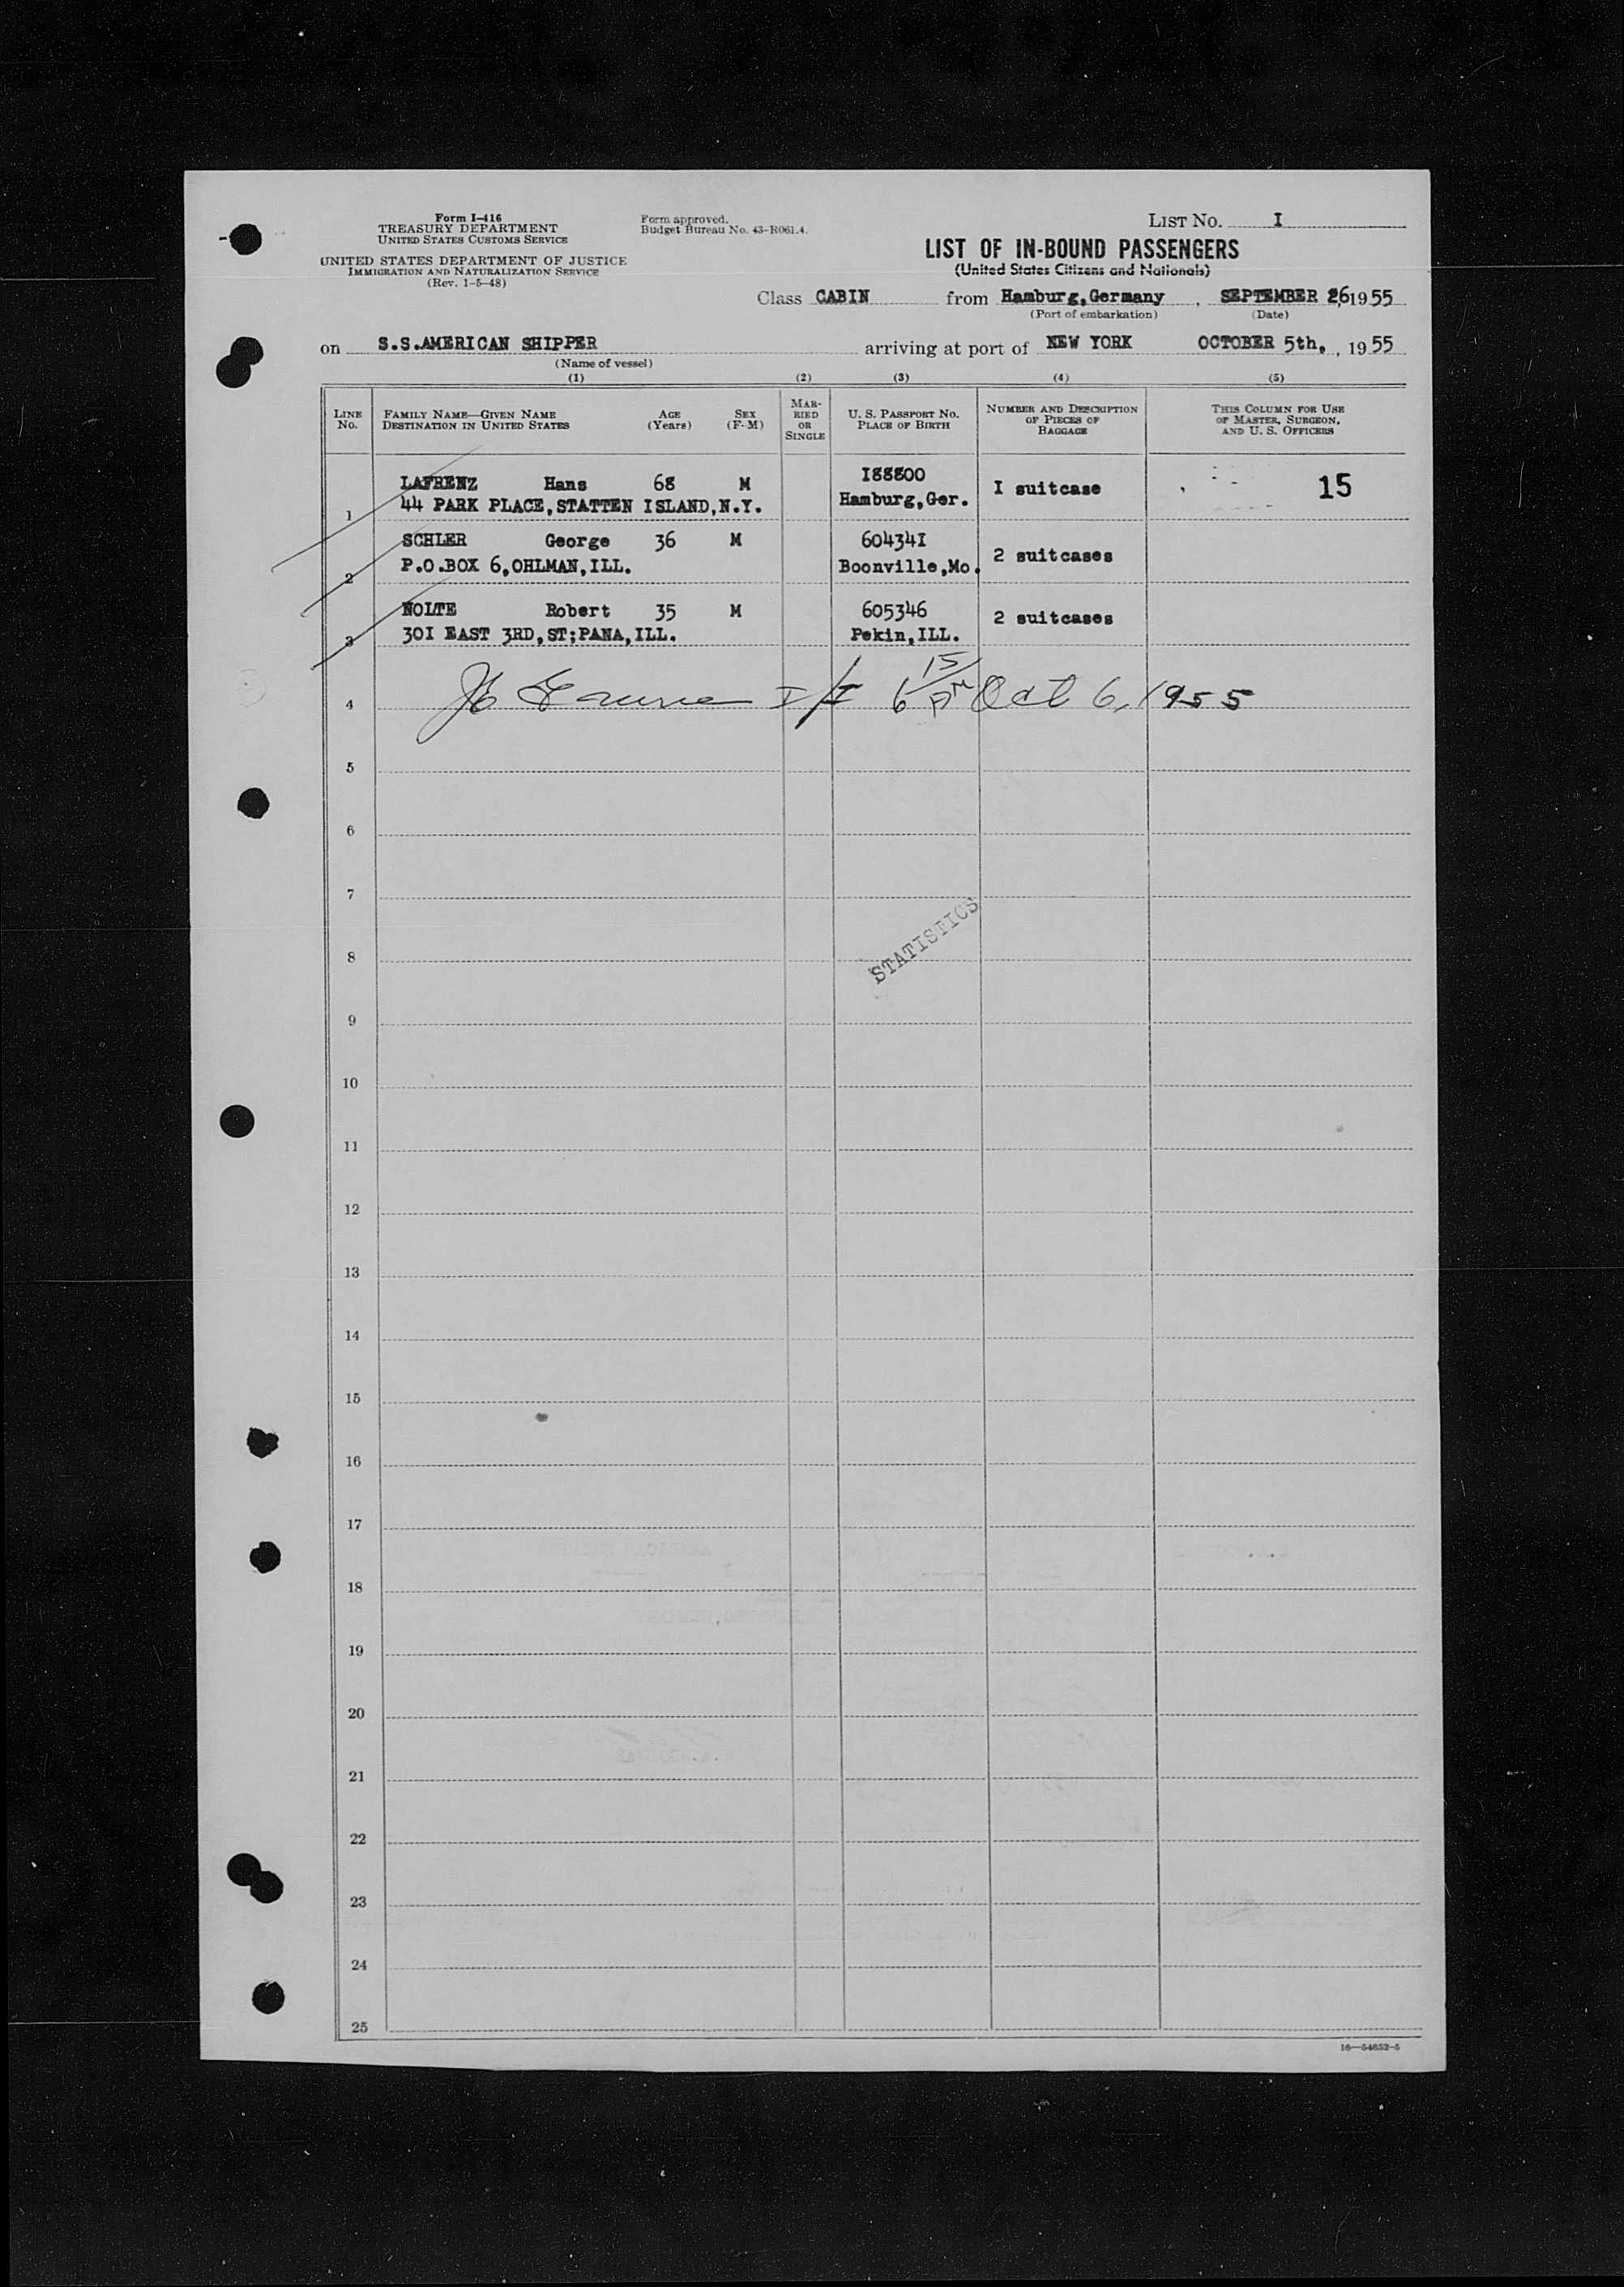 Form I-416
TREASURY DEPARTMENT
UNITED STATES CUSTOMS SERVICE
UNITED STATES DEPARTMENT OF JUSTICE
IMMIGRATION AND NATURALIZATION SERVICE
(Rev. 1-5-48)
Form approved.
Budget Bureau No. 43-R061.4.
LIST NO. I
LIST OF IN-BOUND PASSENGERS
(United States Citizens and Nationals)
Class CABIN from Hamburg,Germany , SEPTEMBER 26 1955
(Port of embarkation) (Date)
on S.S.AMERICAN SHIPPER arriving at port of NEW YORK OCTOBER 5th, , 1955
(Name of vessel)
(1) (2) (3) (4) (5)
LINE No. FAMILY NAME—GIVEN NAME DESTINATION IN UNITED STATES AGE (Years) SEX (F-M) MARRIED OR SINGLE U. S. PASSPORT NO. PLACE OF BIRTH NUMBER AND DESCRIPTION OF PIECES OF BAGGAGE THIS COLUMN FOR USE OF MASTER, SURGEON, AND U. S. OFFICERS
1 LAFRENZ Hans 68 M I88800 I suitcase 15
44 PARK PLACE,STATTEN ISLAND,N.Y. Hamburg,Ger.
2 SCHLER George 36 M 60434I 2 suitcases
P.O.BOX 6,OHLMAN,ILL. Boonville,Mo.
3 NOLTE Robert 35 M 605346 2 suitcases
30I EAST 3RD,ST;PANA,ILL. Pekin,ILL.
4 I/I 6 15 PM Oct 6, 1955
5
6
7
STATISTICS
8
9
10
11
12
13
14
15
16
17
18
19
20
21
22
23
24
25
16—54652-5